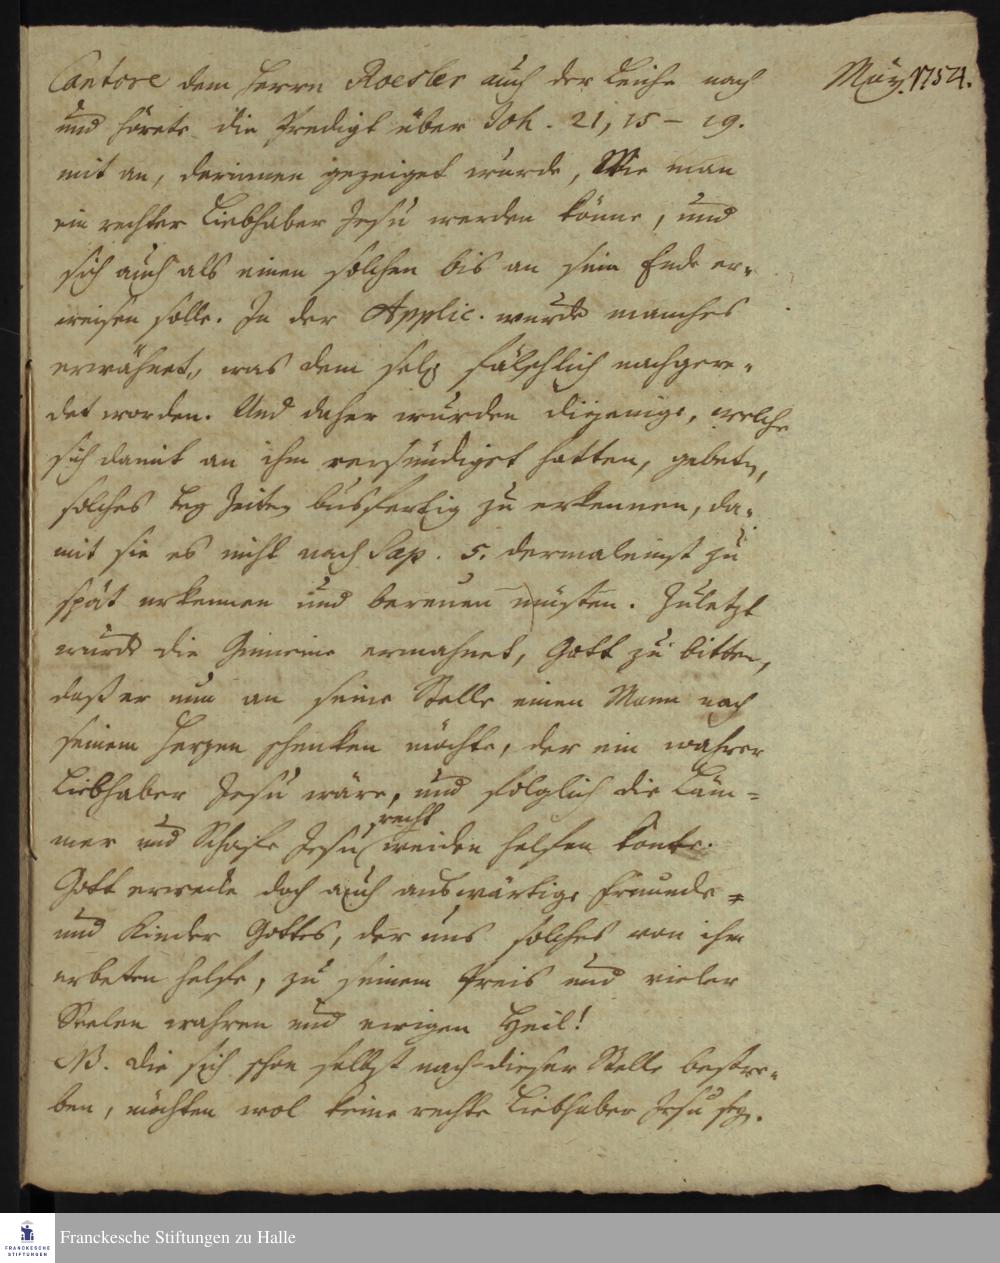 Cantore dem Herrn Roesler auch der Leiche nach
und hörete die Predigt über Joh. 21, 15 – 19.
mit an, darinnen gezeiget wurde, Wie man
ein rechter Liebhaber Jesu werden könne, und
sich auch als einen solchen bis an sein Ende er-
weisen solle. In der Applic. wurde manches
erwähnet, was dem sel. fälschlich nachgere-
det worden. Und daher wurden diejenige, welche
sich damit an ihm versündiget hatten, gebeten,
solches bey Zeiten bußfertig zu erkennen, da-
mit sie es nicht nach Sap. 5. dermaleinst zu
spät erkennen und bereuen müsten. Zuletzt
wurde die Gemeine ermahnet, Gott zu bitten,
daß er nun an seine Stelle einen Mann nach
seinem Herzen schenken möchte, der ein wahrer
Liebhaber Jesu wäre, und folglich die Läm-
mer und Schafe Jesu recht weiden helfen konte.
Gott erwecke doch auch auswärtige Freunde
und Kinder Gottes, der uns solches von ihm
erbeten helfe, zu seinem Preis und vieler
Seelen wahren und ewigen Heil!
NB. Die sich schon selbst nach dieser Stelle bestre-
ben, möchten wol keine rechte Liebhaber Jesu seyn.
May. 1754.
Franckesche Stiftungen zu Halle
FRANCKESCHE
STIFTUNGEN